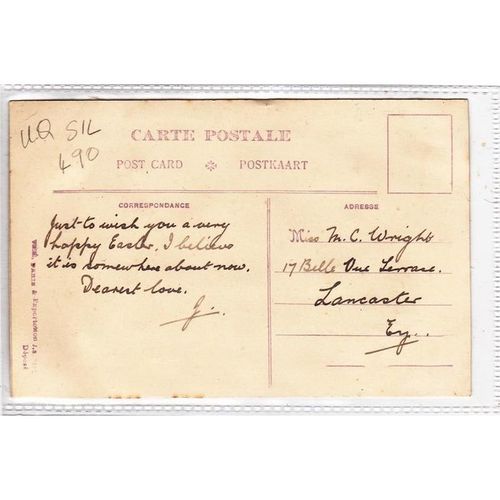 UQ SIL
490
CARTE POSTALE
POST CARD ✻ POSTKAART
CORRESPONDANCE
ADRESSE
Just to wish you a very
happy Easter. I believe
it is somewhere about now.
Dearest love.
J.
Miss M. C. Wright
17 Belle Vue Terrase.
Lancaster
Ey.
PARIS & Exportation
Déposé